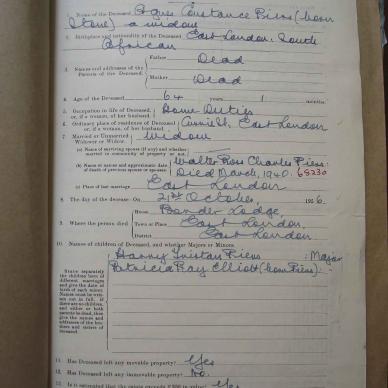 1. Name of the Deceased Agnes Constance Piers (born
Stone) a widow
2. Birthplace and nationality of the Deceased East London. South
African
3. Names and addresses of the Parents of the Deceased.
Father Dead
Mother Dead
4. Age of the Deceased 64 years 1 months.
5. Occupation in life of Deceased, or, if a woman, of her husband Home Duties
6. Ordinary place of residence of Deceased or, if a woman, of her husband St. East London
7. Married or Unmarried Widower or Widow Widow
(a) Name of surviving spouse (if any) and whether married in community of property or not
(b) Name or names and approximate date of death of previous spouse or spouses Walter Ross Charles Piers:
Died March, 1940. 68230
(c) Place of last marriage East London
8. The day of the decease On 21st October, 1956.
9. Where the person died
House Bender Lodge,
Town or Place East London,
District East London
10. Names of children of Deceased, and whether Majors or Minors.
State separately
the children born of
different marriages
and give the date of
birth of each minor.
Names must be written
out in full. If
there are no children,
and either or both
parents be dead, then
give the names and
addresses of the brothers
and sisters of
deceased.
Harry Tristan Piers : Major
Patricia Ray Elliott (born Piers) :
11. Has Deceased left any movable property? Yes
12. Has Deceased left any immovable property? No.
13. Is it estimated that the estate exceeds £300 in value? Yes